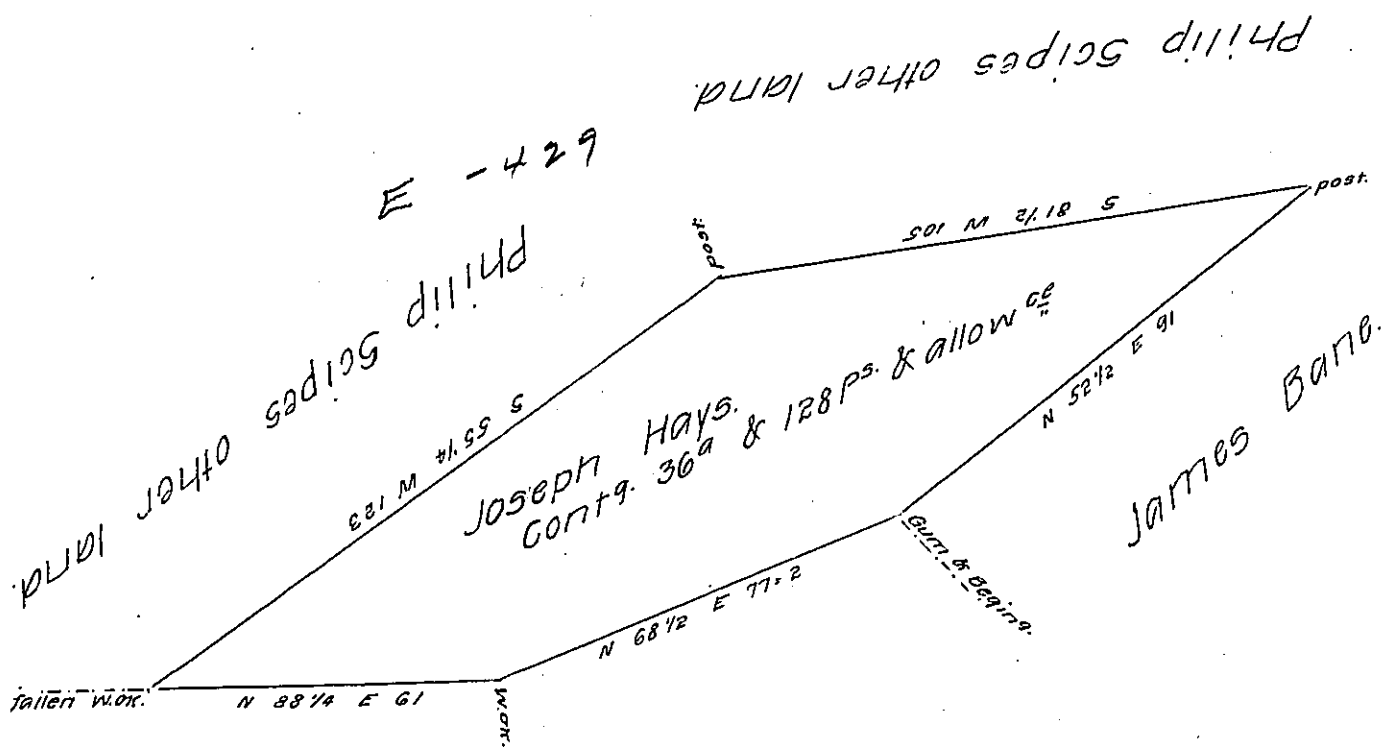 Philip Scipes other land.
E - 429
Philip Scipes other land.
post.
S 81 1/2 W 105
post.
S 55 1/4 W 123
Joseph Hays.
Contg. 36a & 128 ps. & allowce
N 52 1/2 E 91
James Bane.
Gum & Beging.
N 68 1/2 E 77=2
fallen w.ok.
N 88 1/4 E 61
w.ok.